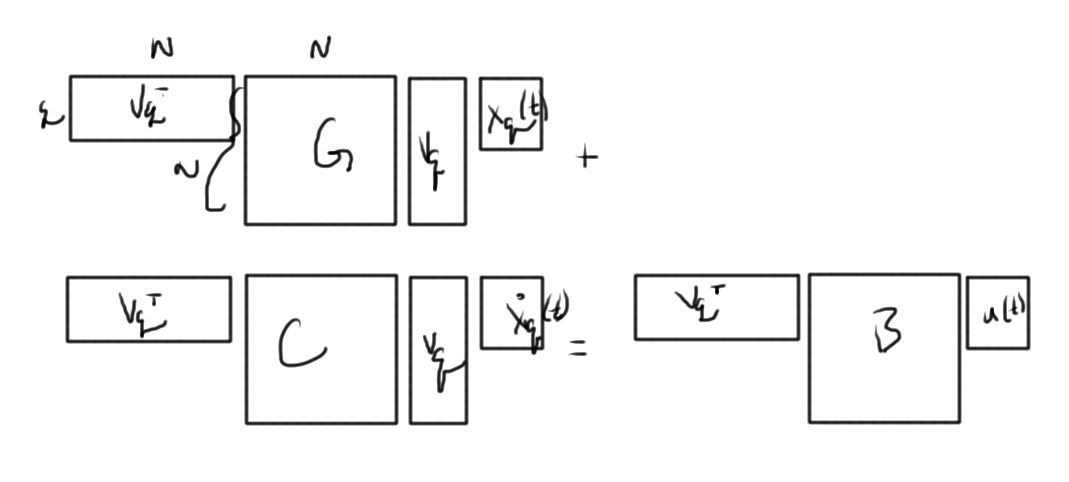 N N
q V_q^T G V_q x_q(t) +
N
V_q^T C V_q ẋ_q(t) = V_q^T B u(t)